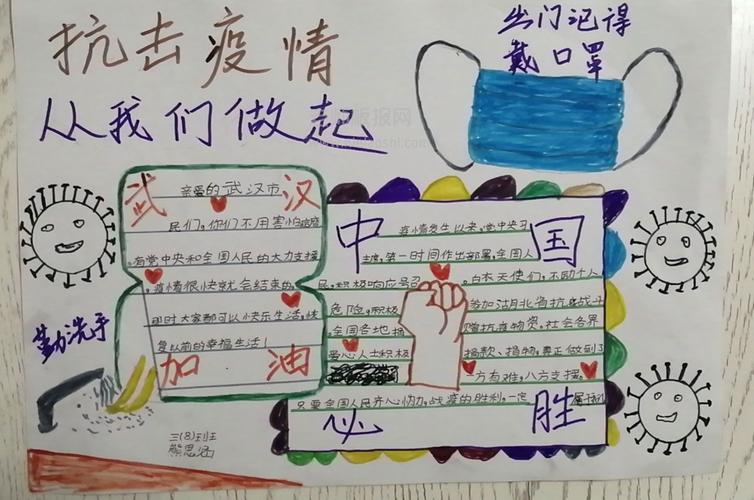 抗击疫情
从我们做起
出门记得
戴口罩
武汉
亲爱的武汉市
民们,你们不用害怕
有党中央和全国人民的大力支援
,疫情很快就会结束的
即时大家都可以快乐生活,恢
复以前的幸福生活!
加油
勤洗手
三(8)班
熊思涵
中国
疫情发生以来,党中央习
主席,第一时间作出部署,全国人
民,积极响应号召。白衣天使们,不顾个人
危险,积极参加湖北省抗疫战斗
,全国各地捐赠抗疫物资。社会各界
爱心人士积极捐款、捐物,真正做到了
一方有难,八方支援。
只要全国人民齐心协力,战疫的胜利,一定属于
必胜